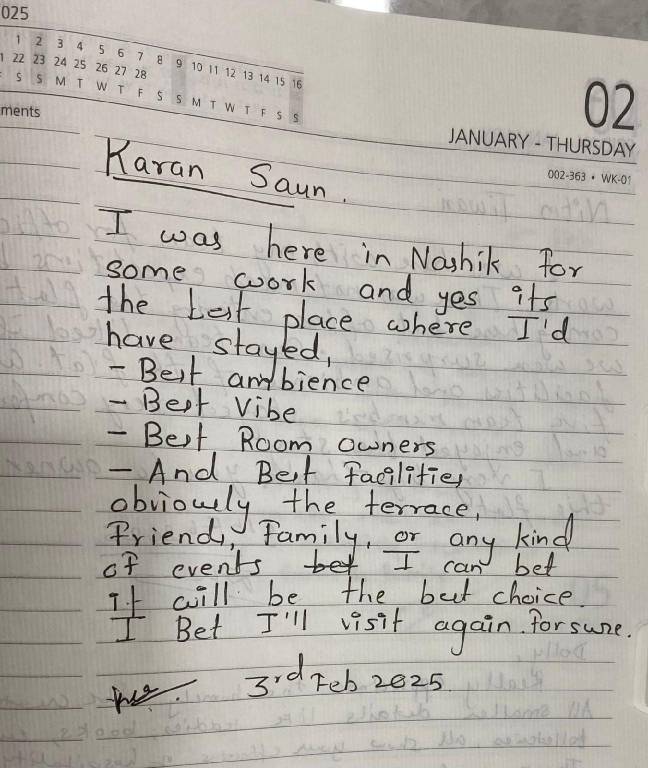 025
1 2 3 4 5 6 7 8 9 10 11 12 13 14 15 16
1 22 23 24 25 26 27 28
S S M T W T F S S M T W T F S S
ments
02
JANUARY - THURSDAY
002-363 • WK-01
Karan Saun.
I was here in Nashik for
some work and yes its
the best place where I'd
have stayed,
- Best ambience
- Best Vibe
- Best Room owners
- And Best Facilities
obviously the terrace,
Friends, Family, or any kind
of events bet I can bet
it will be the best choice.
I Bet I'll visit again. for sure.
3rd Feb 2025